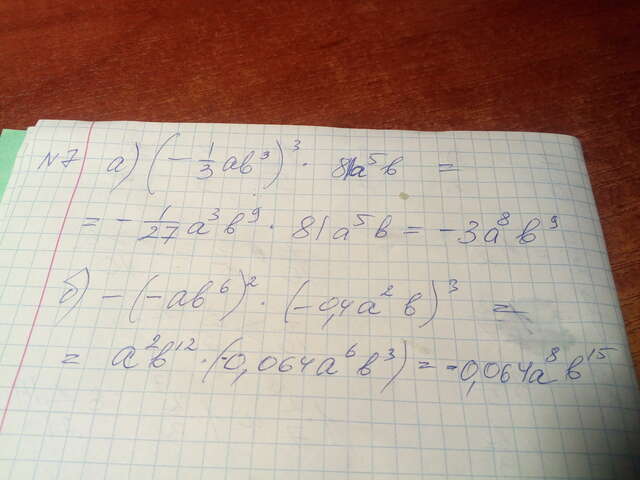 N7 а) (-1/3 ab³)³ · 81a⁵b =
= -1/27 a³b⁹ · 81a⁵b = -3a⁸b⁹
б) -(-ab⁶)² · (-0,4a²b)³ =
= a²b¹² · (-0,064a⁶b³) = -0,064a⁸b¹⁵